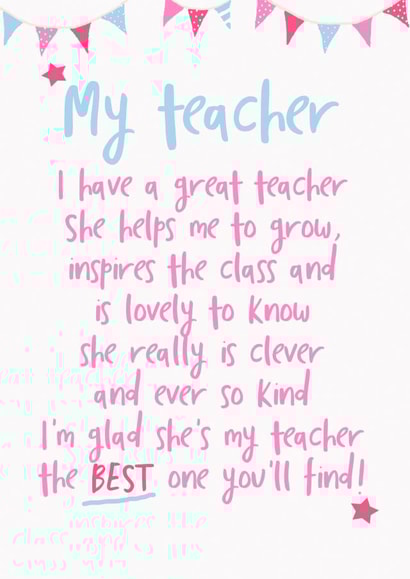 My teacher
I have a great teacher
She helps me to grow,
inspires the class and
is lovely to know
she really is clever
and ever so kind
I'm glad she's my teacher
the BEST one you'll find!